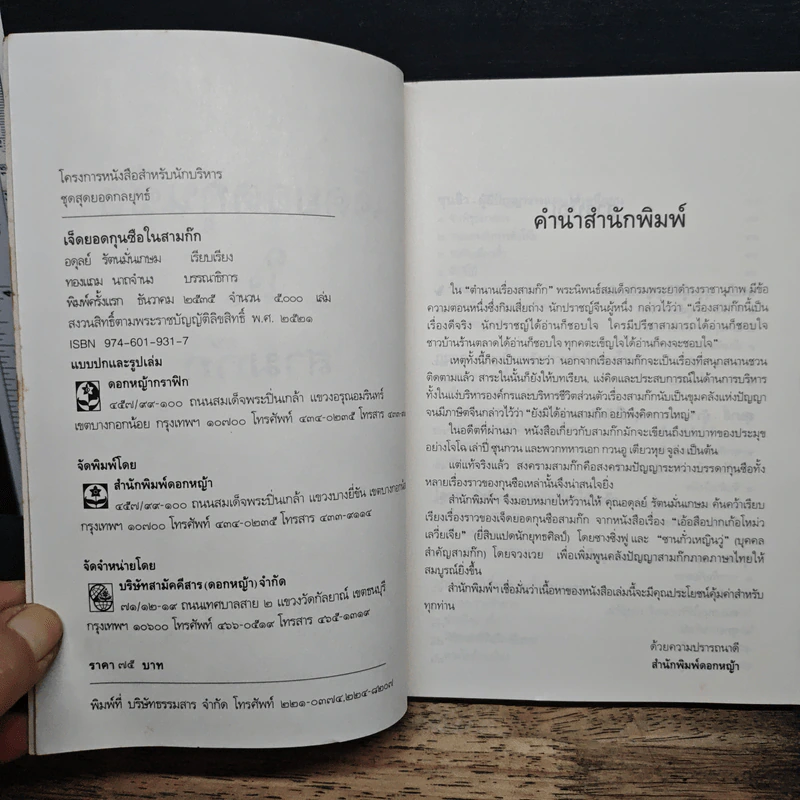 โครงการหนังสือสำหรับนักบริหาร
ชุดสุดยอดกลยุทธ์
เจ็ดยอดกุนซือในสามก๊ก
อดุลย์ รัตนมั่นเกษม เรียบเรียง
ทองแถม นาถจำนง บรรณาธิการ
พิมพ์ครั้งแรก ธันวาคม ๒๕๓๕ จำนวน ๕,๐๐๐ เล่ม
สงวนสิทธิ์ตามพระราชบัญญัติลิขสิทธิ์ พ.ศ. ๒๕๒๑
ISBN 974-601-931-7
แบบปกและรูปเล่ม
ดอกหญ้ากราฟิก
๔๕๗/๙๙-๑๐๐ ถนนสมเด็จพระปิ่นเกล้า แขวงอรุณอมรินทร์
เขตบางกอกน้อย กรุงเทพฯ ๑๐๗๐๐ โทรศัพท์ ๔๓๔-๐๒๓๕ โทรสาร
จัดพิมพ์โดย
สำนักพิมพ์ดอกหญ้า
๔๕๗/๙๙-๑๐๐ ถนนสมเด็จพระปิ่นเกล้า แขวงบางยี่ขัน เขตบางกอกน้อย
กรุงเทพฯ ๑๐๗๐๐ โทรศัพท์ ๔๓๔-๐๒๓๕ โทรสาร ๔๓๓-๙๑๑๔
จัดจำหน่ายโดย
บริษัทสามัคคีสาร (ดอกหญ้า) จำกัด
๗๑/๑๒-๑๙ ถนนเทศบาลสาย ๒ แขวงวัดกัลยาณ์ เขตธนบุรี
กรุงเทพฯ ๑๐๖๐๐ โทรศัพท์ ๔๖๖-๐๕๑๙ โทรสาร ๔๖๕-๑๓๑๙
ราคา ๗๕ บาท
พิมพ์ที่ บริษัทธรรมสาร จำกัด โทรศัพท์ ๒๒๑-๐๓๗๔, ๒๒๔-๘๒๐๗
คำนำสำนักพิมพ์
ใน “ตำนานเรื่องสามก๊ก” พระนิพนธ์สมเด็จกรมพระยาดำรงราชานุภาพ มีข้อ
ความตอนหนึ่งซึ่งกิมเสี่ยถ่าง นักปราชญ์จีนผู้หนึ่ง กล่าวไว้ว่า “เรื่องสามก๊กนี้เป็น
เรื่องดีจริง นักปราชญ์ได้อ่านก็ชอบใจ ใครมีปรีชาสามารถได้อ่านก็ชอบใจ
ชาวบ้านร้านตลาดได้อ่านก็ชอบใจ ทุกคตะเข็ญใจได้อ่านก็คงจะชอบใจ”
เหตุทั้งนี้ก็คงเป็นเพราะว่า นอกจากเรื่องสามก๊กจะเป็นเรื่องที่สนุกสนานชวน
ติดตามแล้ว สาระในนั้นก็ยังให้บทเรียน, แง่คิดและประสบการณ์ในด้านการบริหาร
ทั้งในแง่บริหารองค์กรและบริหารชีวิตส่วนตัวเรื่องสามก๊กนับเป็นขุมคลังแห่งปัญญา
จนมีภาษิตจีนกล่าวไว้ว่า “ยังมิได้อ่านสามก๊ก อย่าพึงคิดการใหญ่”
ในอดีตที่ผ่านมา หนังสือเกี่ยวกับสามก๊กมักจะเขียนถึงบทบาทของประมุข
อย่างโจโฉ เล่าปี่ ซุนกวน และพวกทหารเอก กวนอู เตียวหุย จูล่ง เป็นต้น
แต่แท้จริงแล้ว สงครามสามก๊กคือสงครามปัญญาระหว่างบรรดากุนซือทั้ง
หลายเรื่องราวของกุนซือเหล่านั้นจึงน่าสนใจยิ่ง
สำนักพิมพ์ฯ จึงมอบหมายไหว้วานให้ คุณอดุลย์ รัตนมั่นเกษม ค้นคว้าเรียบ
เรียงเรื่องราวของเจ็ดยอดกุนซือสามก๊ก จากหนังสือเรื่อง “เอ้อสือปากเก้อโหม่ว
เลวี่ยเจีย” (ยี่สิบแปดนักยุทธศิลป์) โดยชางซิ่งฟู่ และ “ซานกั๋วเหญินวู่” (บุคคล
สำคัญสามก๊ก) โดยจวงเวย เพื่อเพิ่มพูนคลังปัญญาสามก๊กภาคภาษาไทยให้
สมบูรณ์ยิ่งขึ้น
สำนักพิมพ์ฯ เชื่อมั่นว่าเนื้อหาของหนังสือเล่มนี้จะมีคุณประโยชน์คุ้มค่าสำหรับ
ทุกท่าน
ด้วยความปรารถนาดี
สำนักพิมพ์ดอกหญ้า